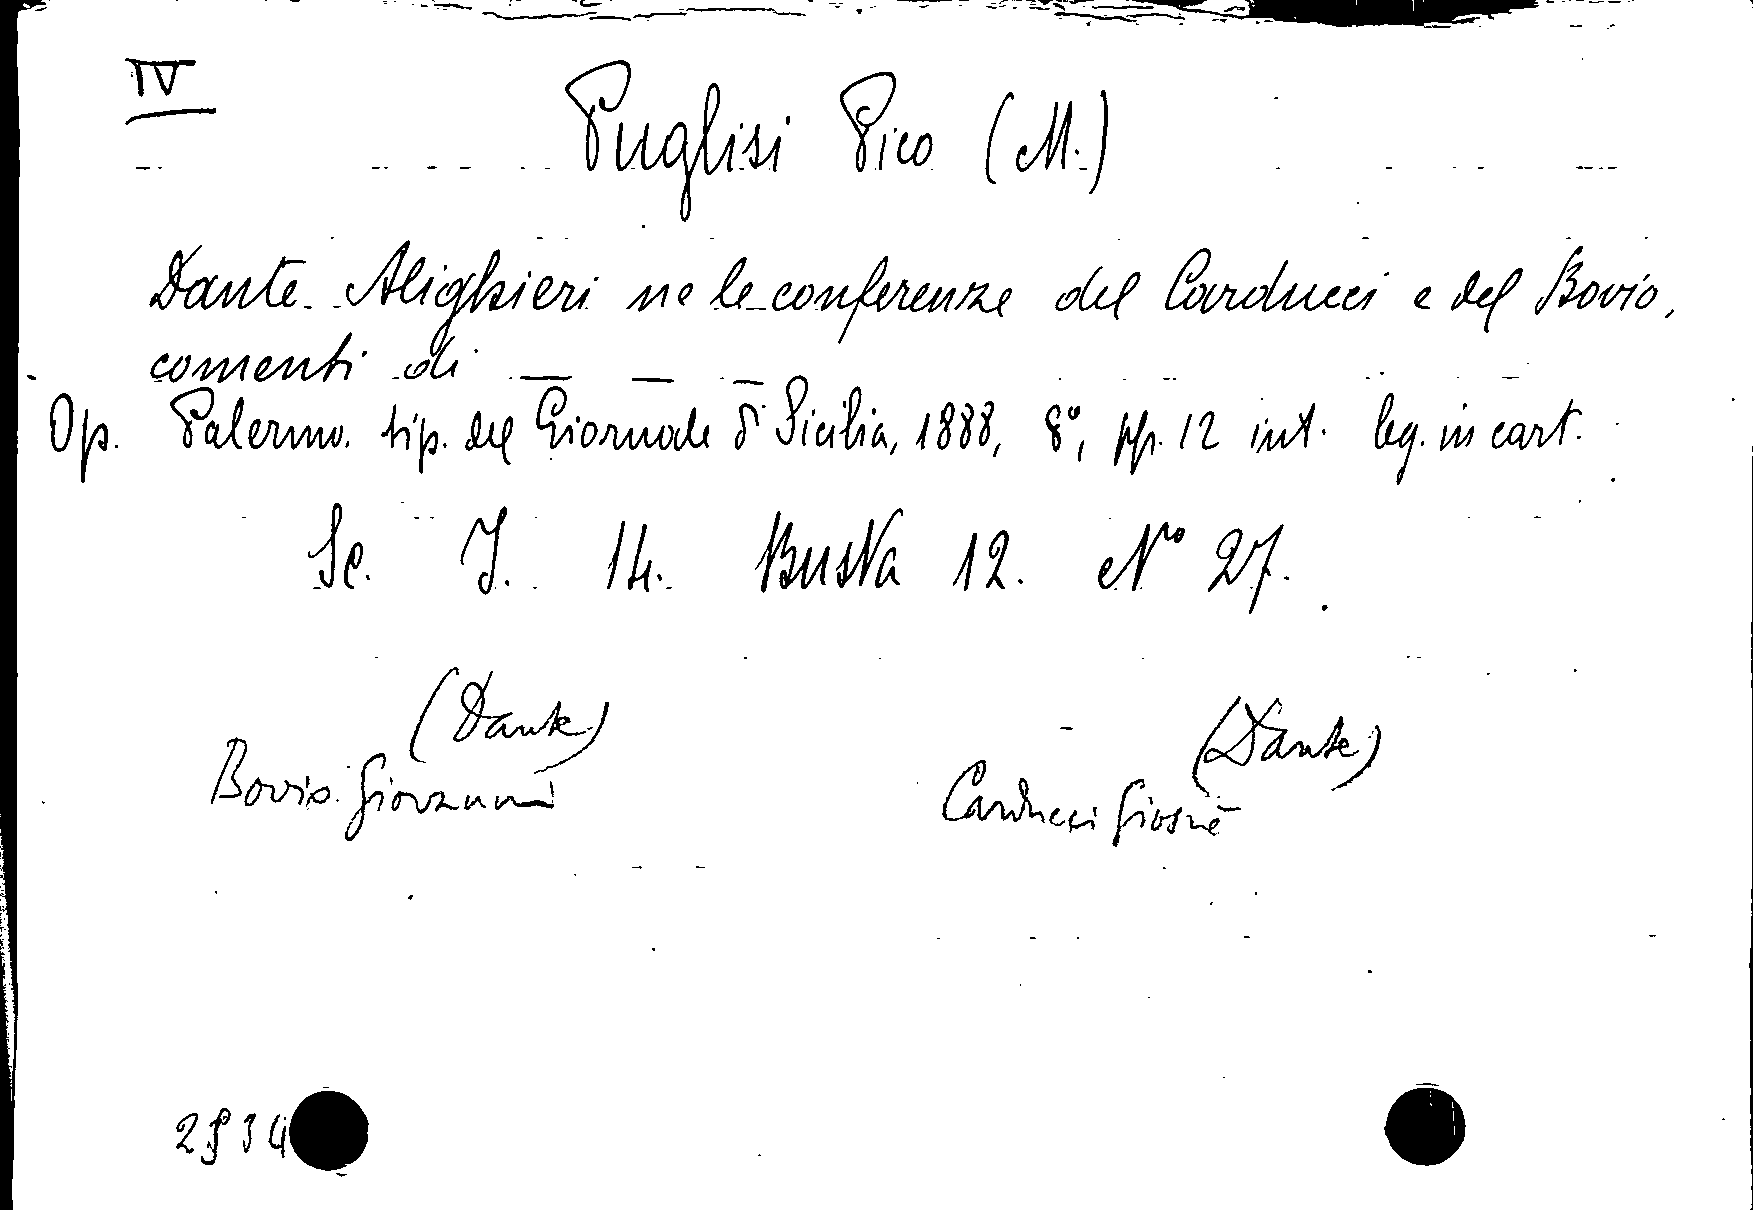 IV
Puglisi Pico (M.)
Dante Alighieri ne le conferenze del Carducci e del Bovio,
comenti di — — —
Op. Palermo. tip. del Giornale di Sicilia, 1888, 8°, pp. 12 int. leg. in cart.
Sc. I. 14. Busta 12. N° 27.
(Dante) (Dante)
Bovio Giovanni Carducci Giosuè